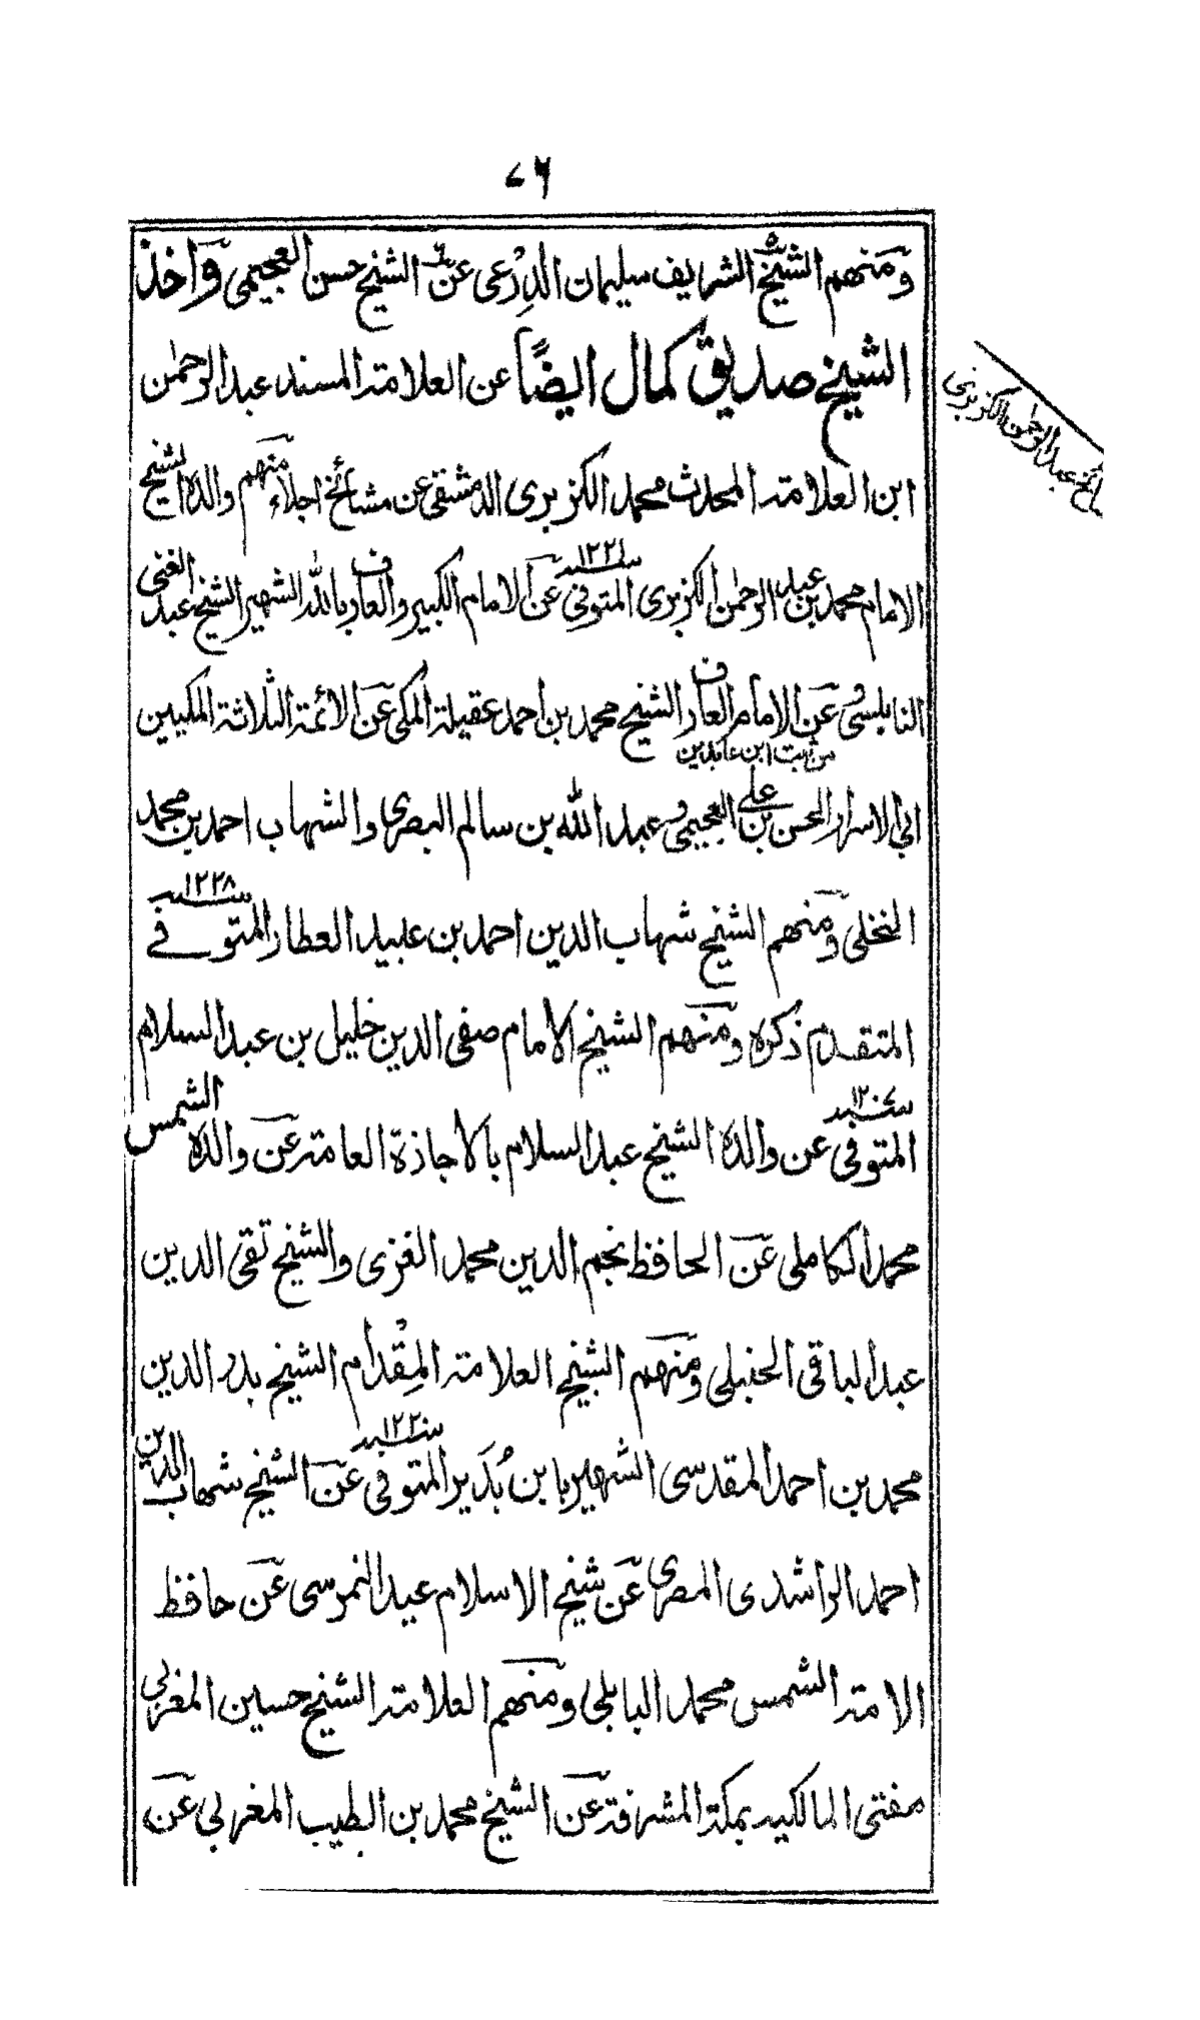 ٧٦
ومنهم الشيخ الشريف سليمان الدِرْعى عن الشيخ حسن العجيمى وَاخذ
الشيخ صديق كمال ايضًا عن العلامة المسند عبد الرحمٰن
مشائخ عبد الرحمٰن الكزبرى
ابن العلامة المحدث محمد الكزبرى الدمشقى عن مشائخ اجلاء منهم والده الشيخ
الامام محمد بن عبد الرحمٰن الكزبرى المتوفى سنة ١٢٢١ عن الامام الكبير والعارف بالله الشهير الشيخ عبد الغنى
النابلسى وعن الامام العارف الشيخ محمد بن احمد عقيلة المكى عن الائمة الثلاثة المكيين
من ثبت ابن عابدين
ابى الاسرار الحسن بن على العجيمى وعبد الله بن سالم البصرى والشهاب احمد بن محمد
النخلى ومنهم الشيخ شهاب الدين احمد بن عبيد العطار المتوفى سنة ١٢٢٨
المتقدم ذكره ومنهم الشيخ الامام صفى الدين خليل بن عبد السلام
المتوفى سنة ١٢٠٧ عن والده الشيخ عبد السلام بالاجازة العامة عن والده الشمس
محمد الكاملى عن الحافظ نجم الدين محمد الغزى والشيخ تقى الدين
عبد الباقى الحنبلى ومنهم الشيخ العلامة المِقْدام الشيخ بدر الدين
محمد بن احمد المقدسى الشهير بابن بُدَير المتوفى سنة ١٢٢٠ عن الشيخ شهاب الدين
احمد الراشدى المصرى عن شيخ الاسلام عيد النمرسى عن حافظ
الامة الشمس محمد البابلى ومنهم العلامة الشيخ حسين المغربى
مفتى المالكية بمكة المشرفة عن الشيخ محمد بن الطيب المغربى عن